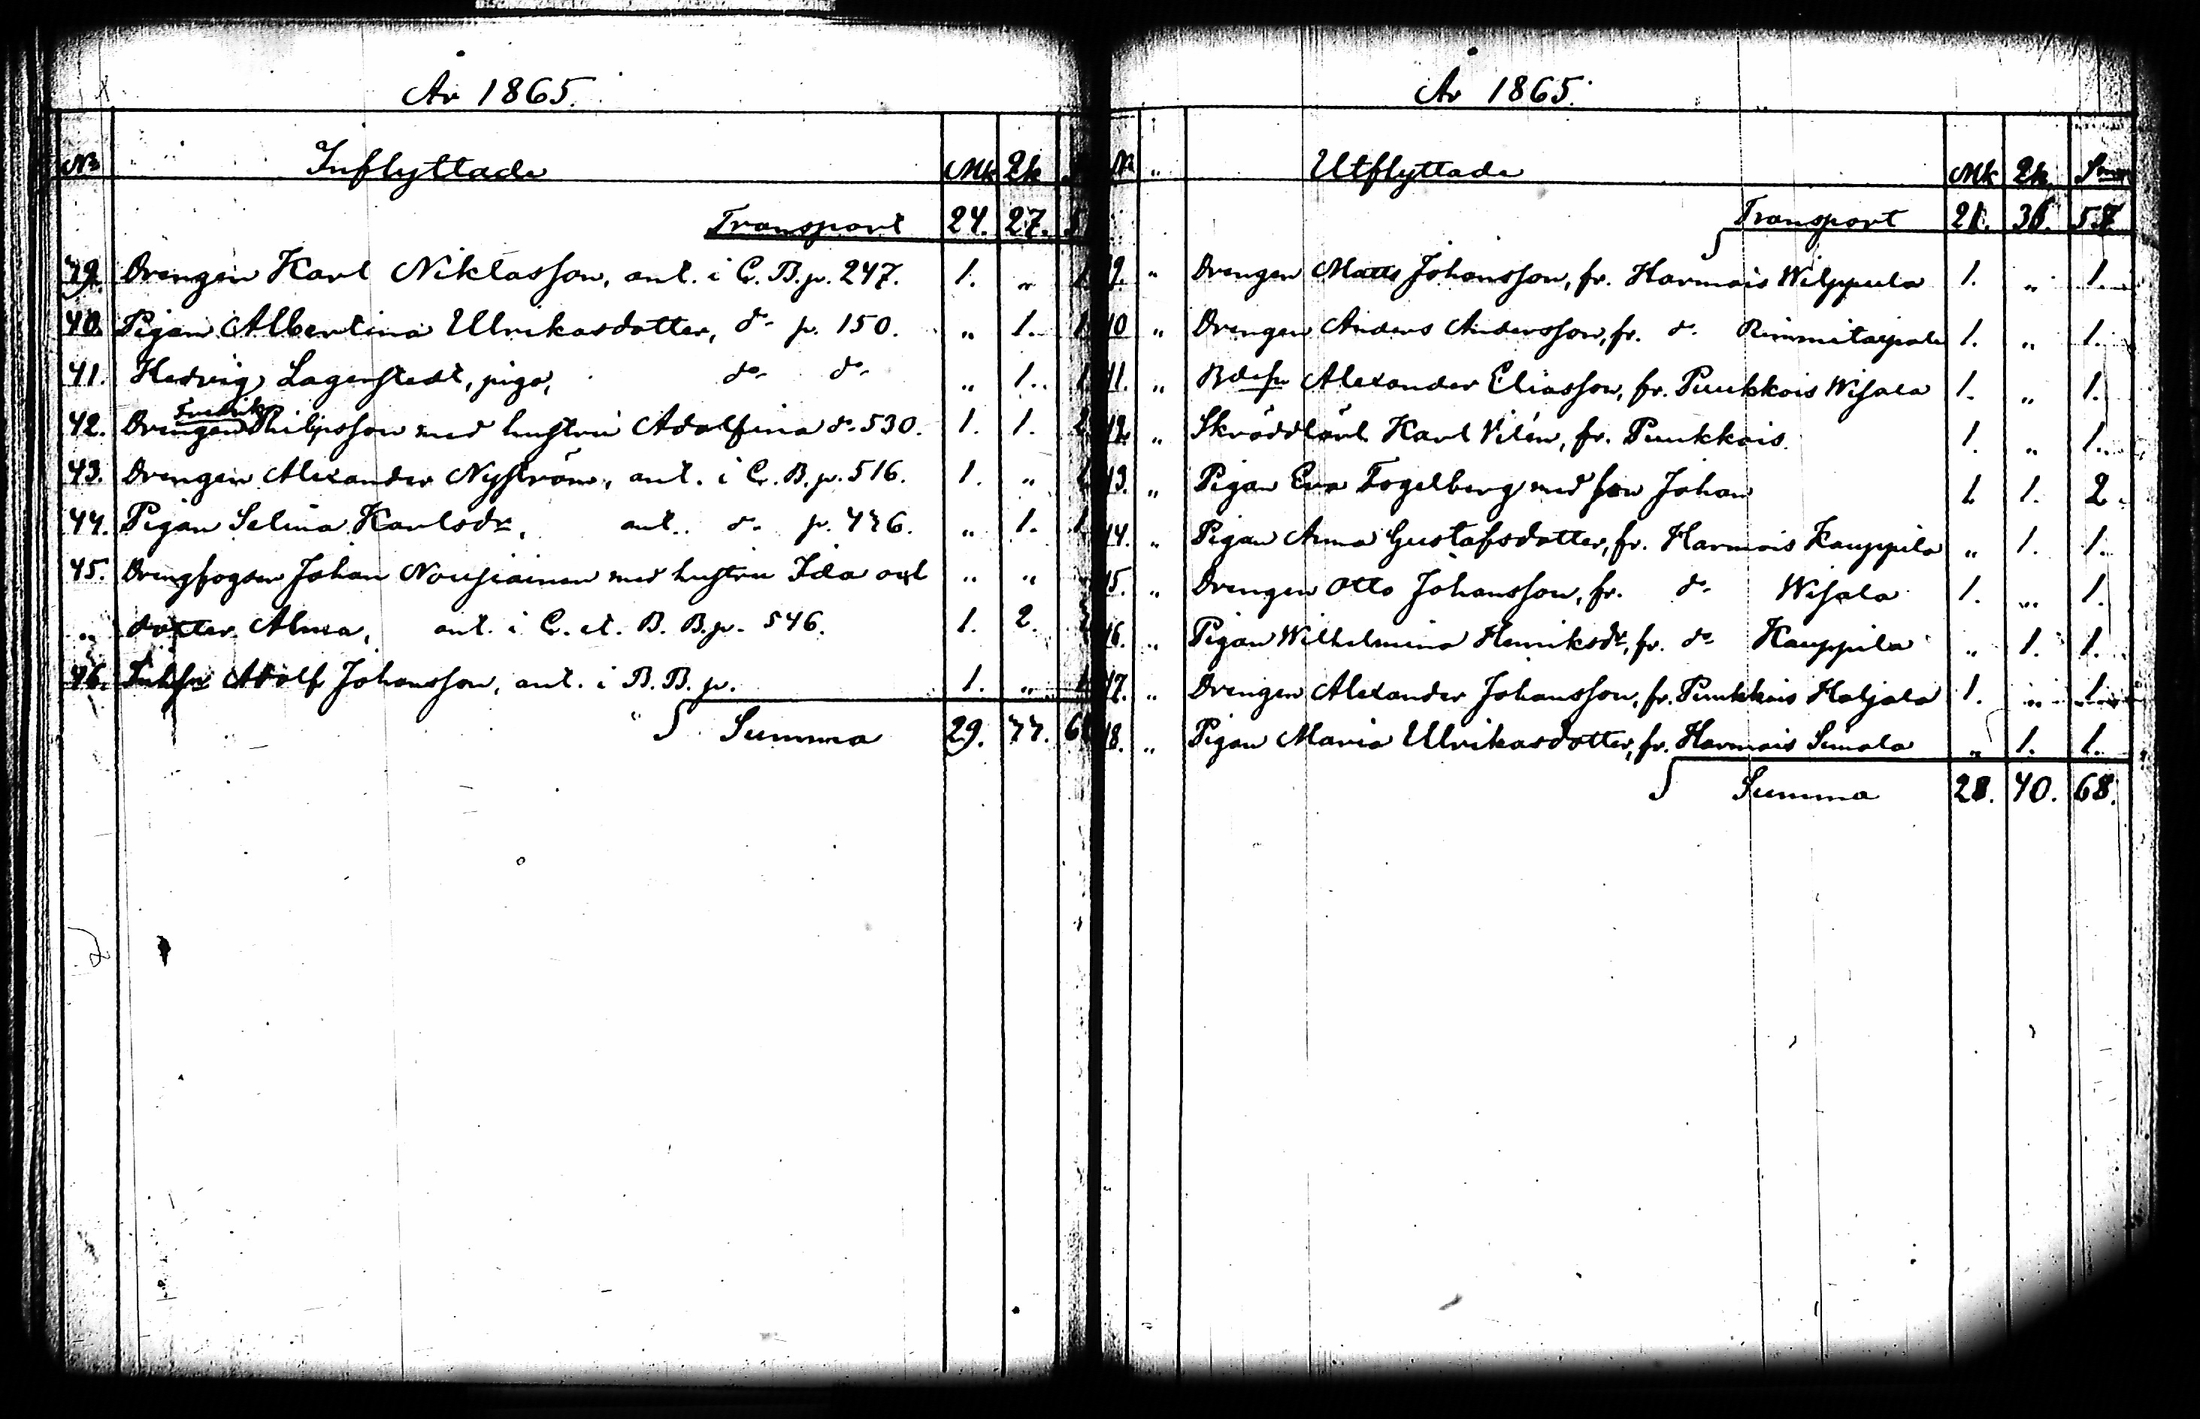 År 1865.
No Inflyttade Mk Qk
Transport 24. 27.
39. Drengen Karl Niklasson, ant. i C. B. p. 247. 1. "
40. Pigan Albertina Ulrikasdotter, do p. 150. " 1. 1
41. Hedvig Lagerstedt, piga, do do " 1. 1
Fredrik
42. Drengen Philipsson med hustru Adolfina do 530. 1. 1. 2
43. Drengen Alexander Nyström, ant. i C. B. p. 516. 1. "
44. Pigan Selina Karlsdr, ant. do p. 476. " 1. 1
45. Drengfogden Johan Nousiainen med hustru Ida och " "
" dotter Alma, ant. i C. et. B. B. p. 546. 1. 2.
46. Adolf Johansson, ant. i B. B. p. 1. "
Summa 29. 77. 6
År 1865.
No " Utflyttade Mk Qk. Sum
Transport 21. 36. 57.
9. " Drengen Matts Johansson, fr. Harmois Wilppula 1. " 1.
10 " Drengen Anders Andersson, fr. do 1. " 1.
11. " Alexander Eliasson, fr. Puukkois Wisala 1. " 1.
12. " Skräddlärl. Karl Vilén, fr. Puukkois. 1. " 1.
13. " Pigan Eva Fogelberg med son Johan 1 1. 2.
14. " Pigan Anna Gustafsdotter, fr. Harmois Kauppila " 1. 1.
15. " Drengen Otto Johansson, fr. do Wisala 1. " 1.
16. " Pigan Wilhelmina Henriksdr, fr. do Kauppila " 1. 1.
17. " Drengen Alexander Johansson, fr. Puukkois Haljala 1. " 1.
18. " Pigan Maria Ulrikasdotter, fr. Harmois Simola " 1. 1.
Summa 28. 40. 68.